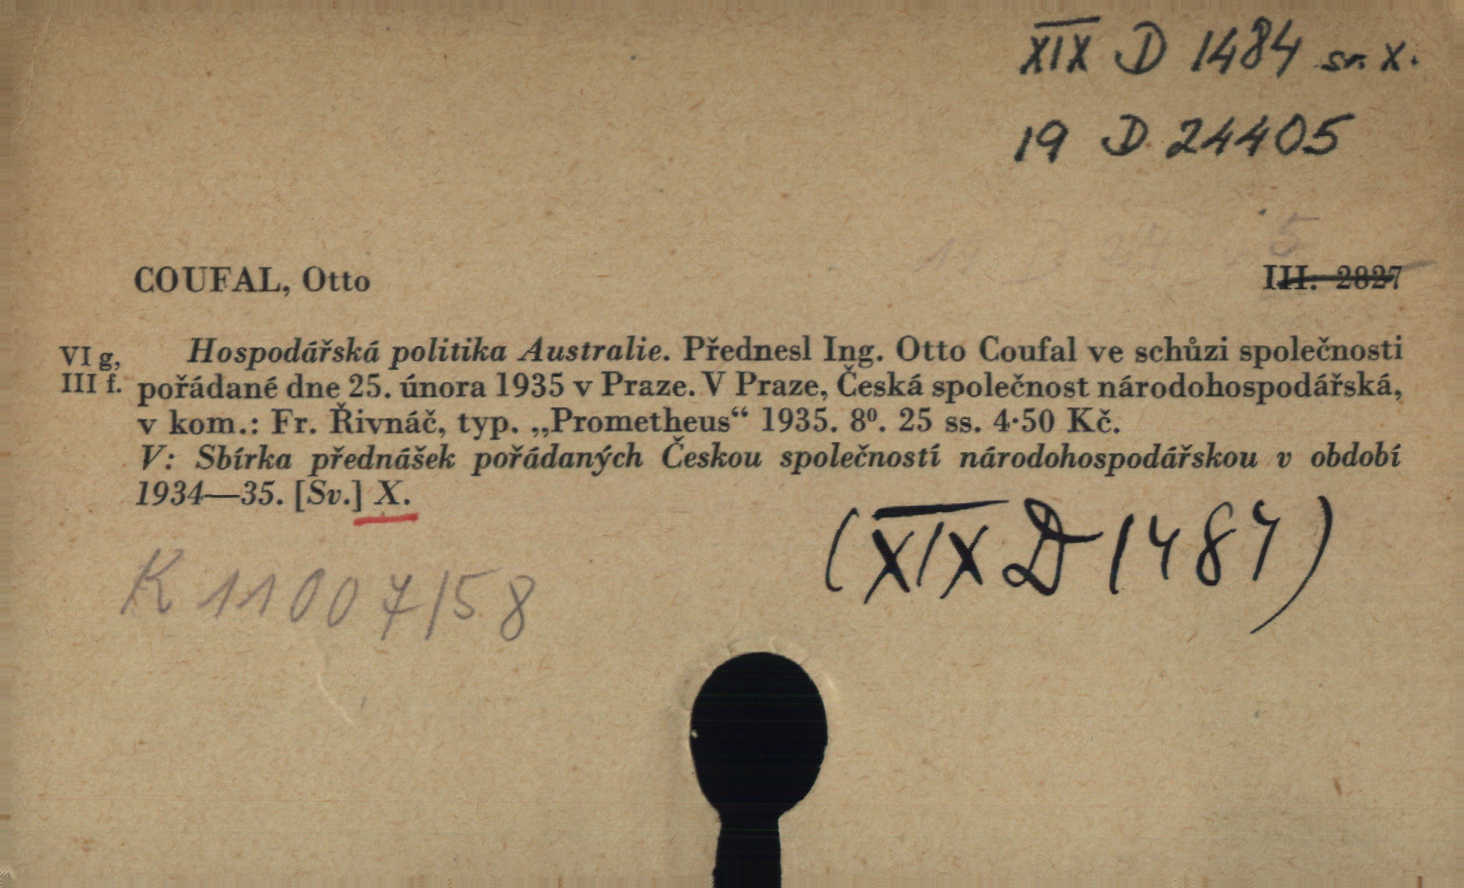 XIX D 1484 sv. X.
19 D 24405
COUFAL, Otto
III. 2827
VI g,
III f.
Hospodářská politika Australie. Přednesl Ing. Otto Coufal ve schůzi společnosti
pořádané dne 25. února 1935 v Praze. V Praze, Česká společnost národohospodářská,
v kom.: Fr. Řivnáč, typ. „Prometheus“ 1935. 8⁰. 25 ss. 4·50 Kč.
V: Sbírka přednášek pořádaných Českou společností národohospodářskou v období
1934—35. [Sv.] X.
(XIX D 1484)
K 11007/58